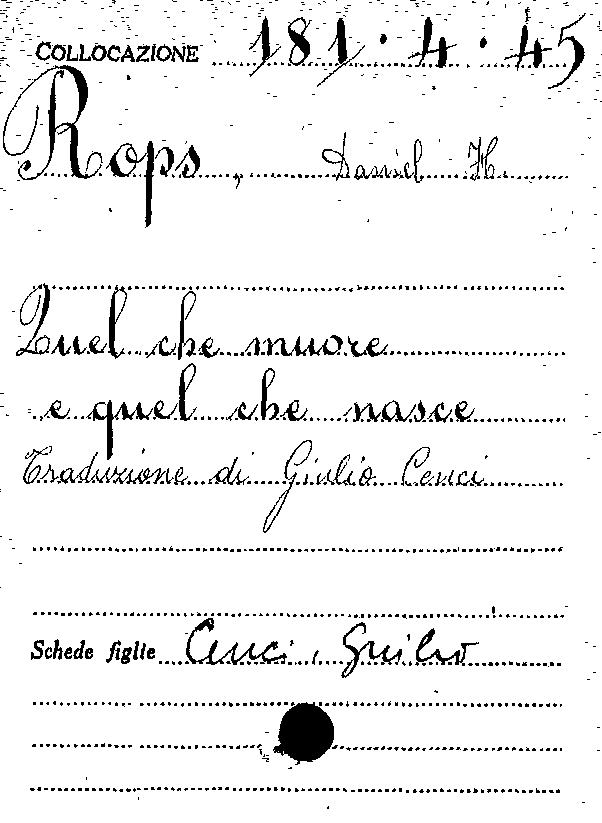 COLLOCAZIONE 181.4.45
Rops, Daniel H.
Quel che muore
e quel che nasce
Traduzione di Giulio Cenci
Schede figlie Cenci, Giulio